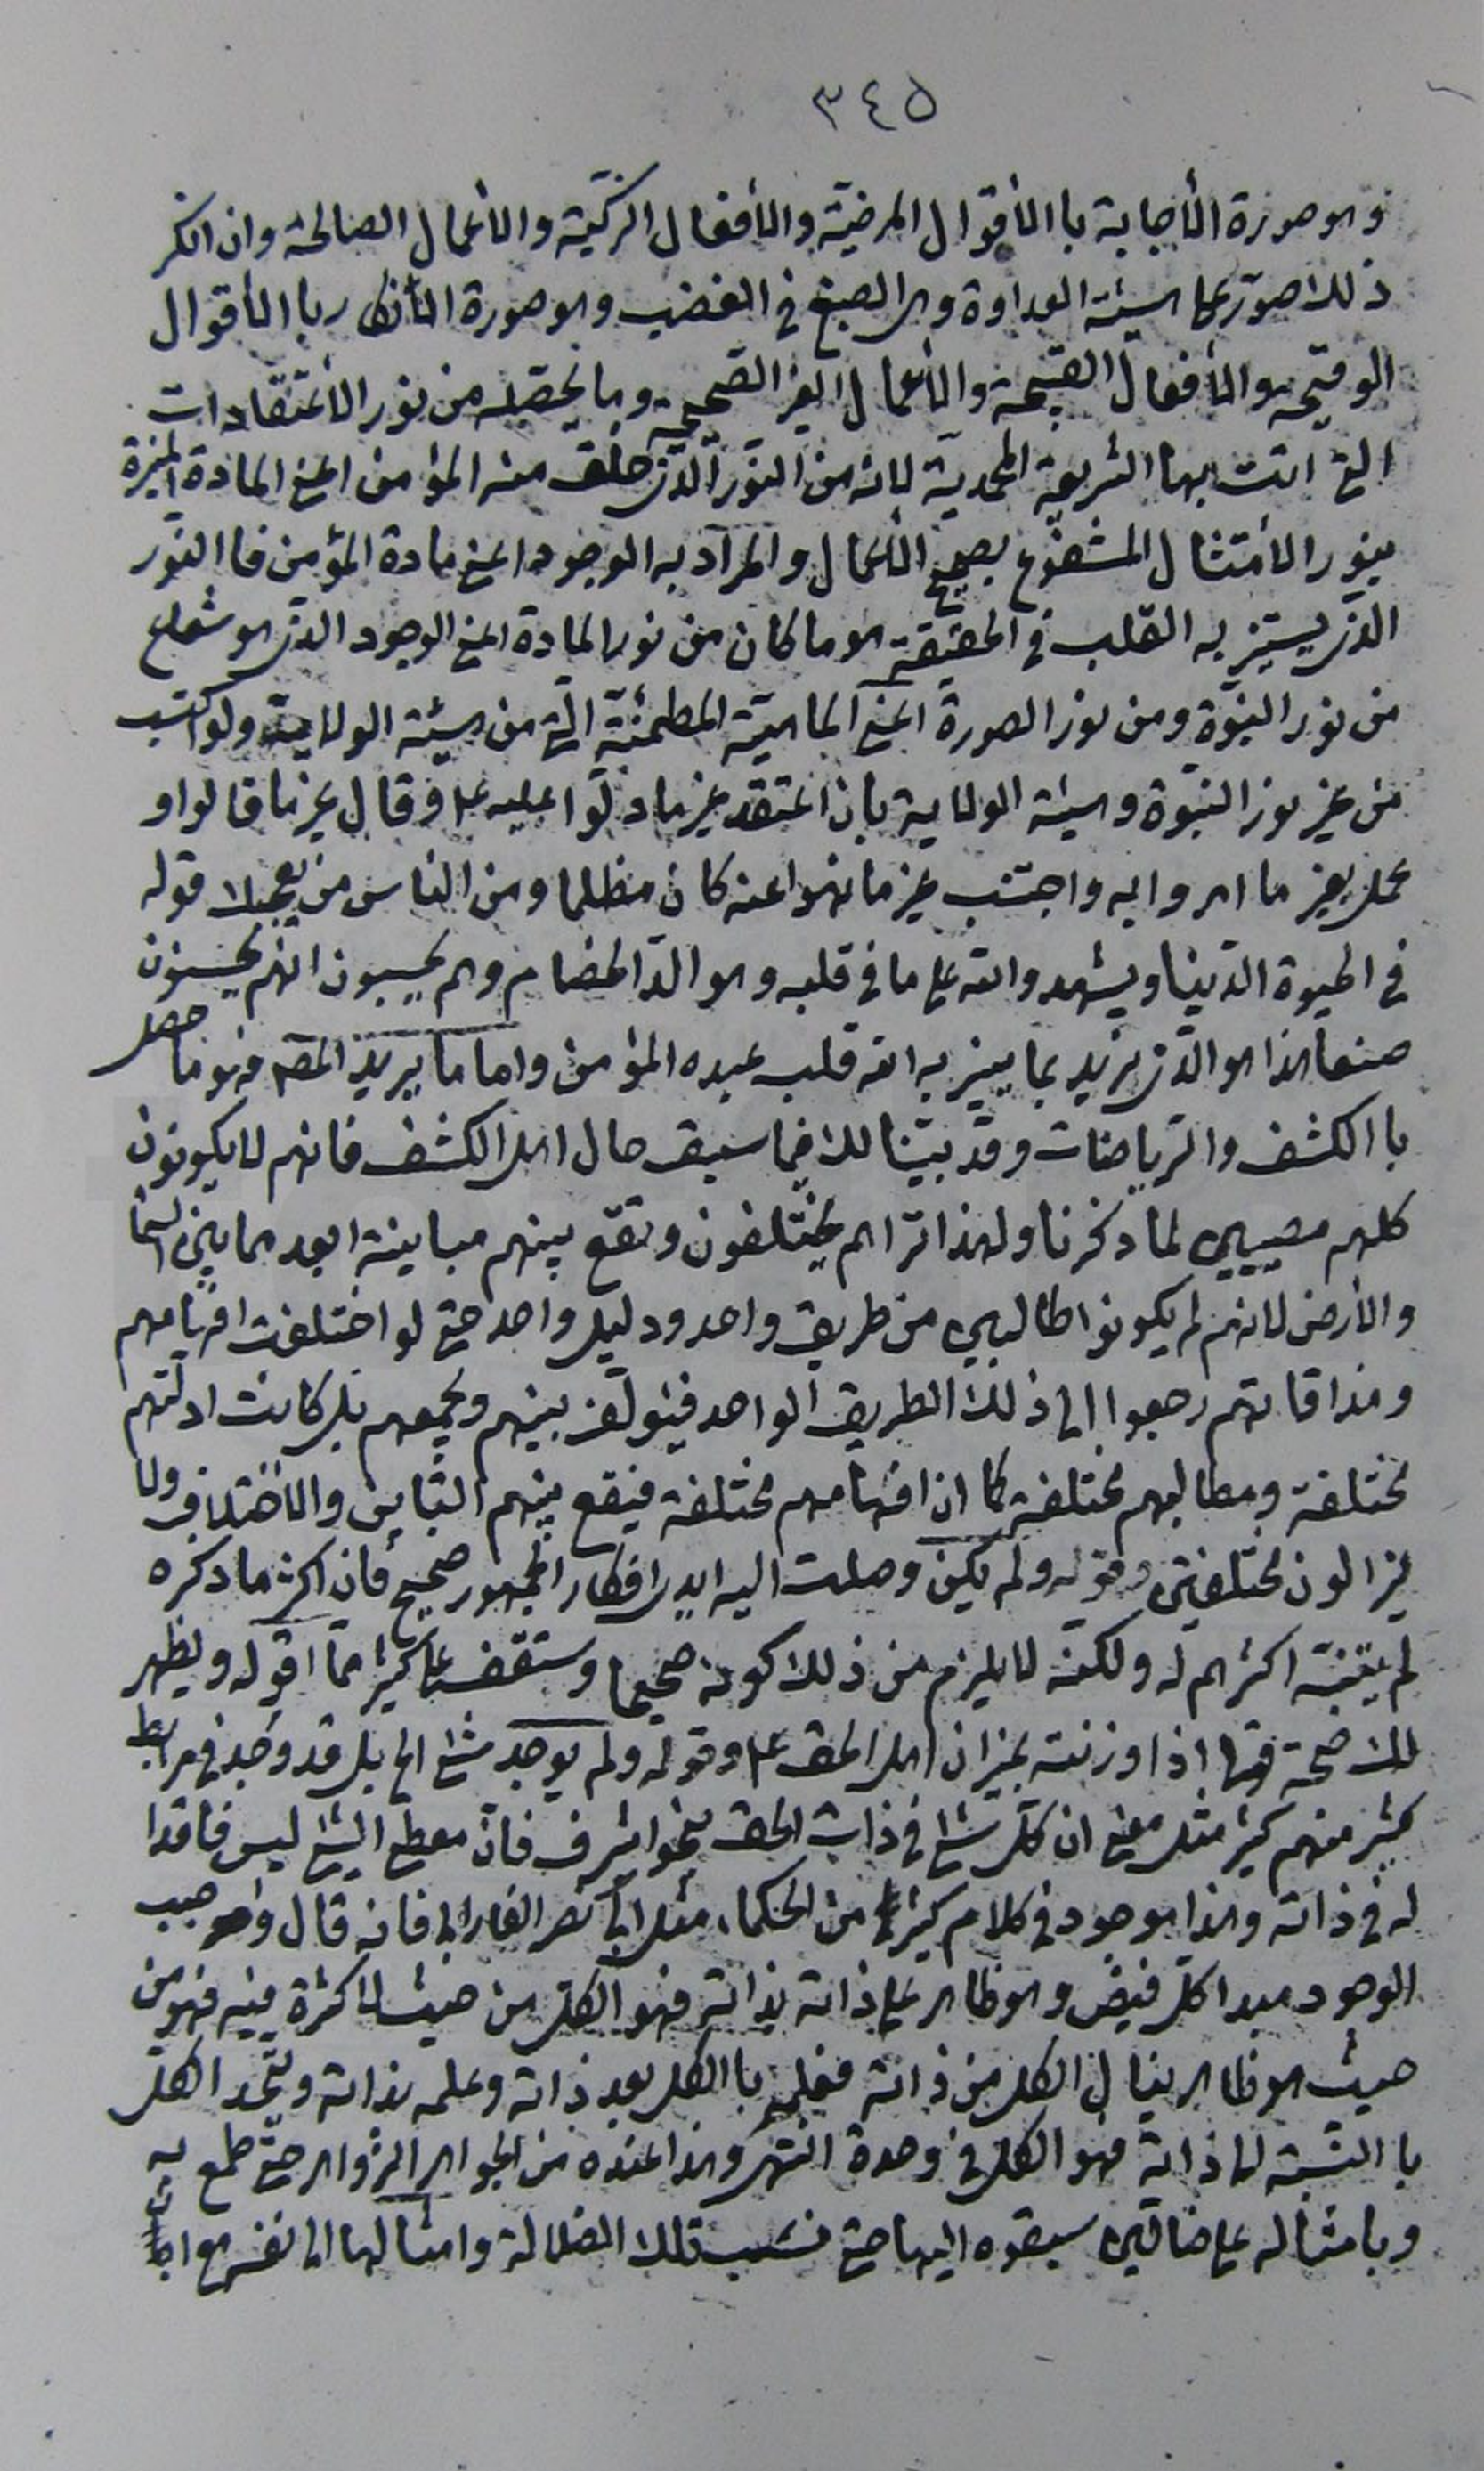 ٣٤٥
وهو صورة الأجابة با الأقوال المرضيّة والأفعال الزكيّة والأعمال الصالحة وان انكر
ذلك صوّر بماهيئة العداوة وهى الصبغ فى الغضب وهو صورة الأنكار با الأقوال
الوقيحة والأفعال القبيحة والأعمال الغير الصحيحة وما يحصّله من نور الأعتقادات
التى اتت بها الشريعة المحمدية لانه من النّور الّذى خلق منه المؤمن اعنى المادة المنيرة
بنور الأمتثال المشفوع بصحيح الأعمال والمراد به الوجود اعنى مادة المؤمن فا النّور
الذى يستنير به القلب فى الحقيقة هو ما كان من نور المادة اعنى الوجود الذى هو شعاع
من نور النبوّة ومن نور الصورة اعنى الماهيّة المطمئنّة الّتى من هيئة الولاية ولو اكتسب
من غير نور النبوّة وهيئة الولاية بان اعتقد غير ما دلّوا عليه ع او قال غير ما قالوا او
عمل بغير ما امروا به واجتنب غير ما نهوا عنه كان مظلما ومن الناس من يعجبك قوله
فى الحيوة الدّنيا ويشهد واللّه على ما فى قلبه وهو الدّ الخصام وهم يحسبون انّهم يحسنون
صنعا هذا هو الّذى نريد بما ينير به اللّه قلب عبده المؤمن واما ما يريد المصـ فهو ما حصل
با الكشف والرّياضات وقد بيّنا لك فيما سبق حال اهل الكشف فانهم لا يكونون
كلهم مصيبين لما ذكرنا ولهذا تراهم يختلفون وتقع بينهم مباينة ابعد مما بين السّما
والأرض لانهم لم يكونوا طالبين من طريق واحد ودليل واحد حتى لو اختلفت افهامهم
ومذاقاتهم رجعوا الى ذلك الطريق الواحد فيؤلّف بينهم ويجمعهم بل كانت ادلّتهم
مختلفة ومطالبهم مختلفة كما ان افهامهم مختلفة فيقع بينهم التباين والأختلاف ولا
يزالون مختلفين وقوله ولم يكن وصلت اليه ايدى افكار الجمهور صحيح فان اكثر ما ذكره
لم يتنبّه اكثرهم له ولكنّه لا يلزم من ذلك كونه صحيحا وستقف على كثير ممّا اقوله ويظهر
لك صحّة قولنا اذا وزنته بميزان اهل الحق ع وقوله ولم يوجد مثلى الخ بل قد وجد فى مرابط
كثير منهم كثير مثل معنى ان كلّ شئ فى ذات الحق بنحو اشرف فانّ معطى الشئ ليس فاقدا
له فى ذاته وهذا موجود فى كلام كثير من الحكماء مثل ابى نصر الفارابى فانه قال واجب
الوجود مبدا كلّ فيض وهو ظاهر على ذاته بذاته فهو الكلّ من حيث لا كثرة فيه فهو من
حيث هو ظاهر ينال الكل من ذاته فعلمه با الكل بعد ذاته وعلمه بذاته ويتّحد الكلّ
با النّسبة الى ذاته فهو الكل فى وحدة انتهى وهذا عنده من الجواهر الزواهر حتى طمع به
وبامثاله على ضالّين سبقوه اليها حتى نسب تلك الضلالة وامثالها الى نفسه مع